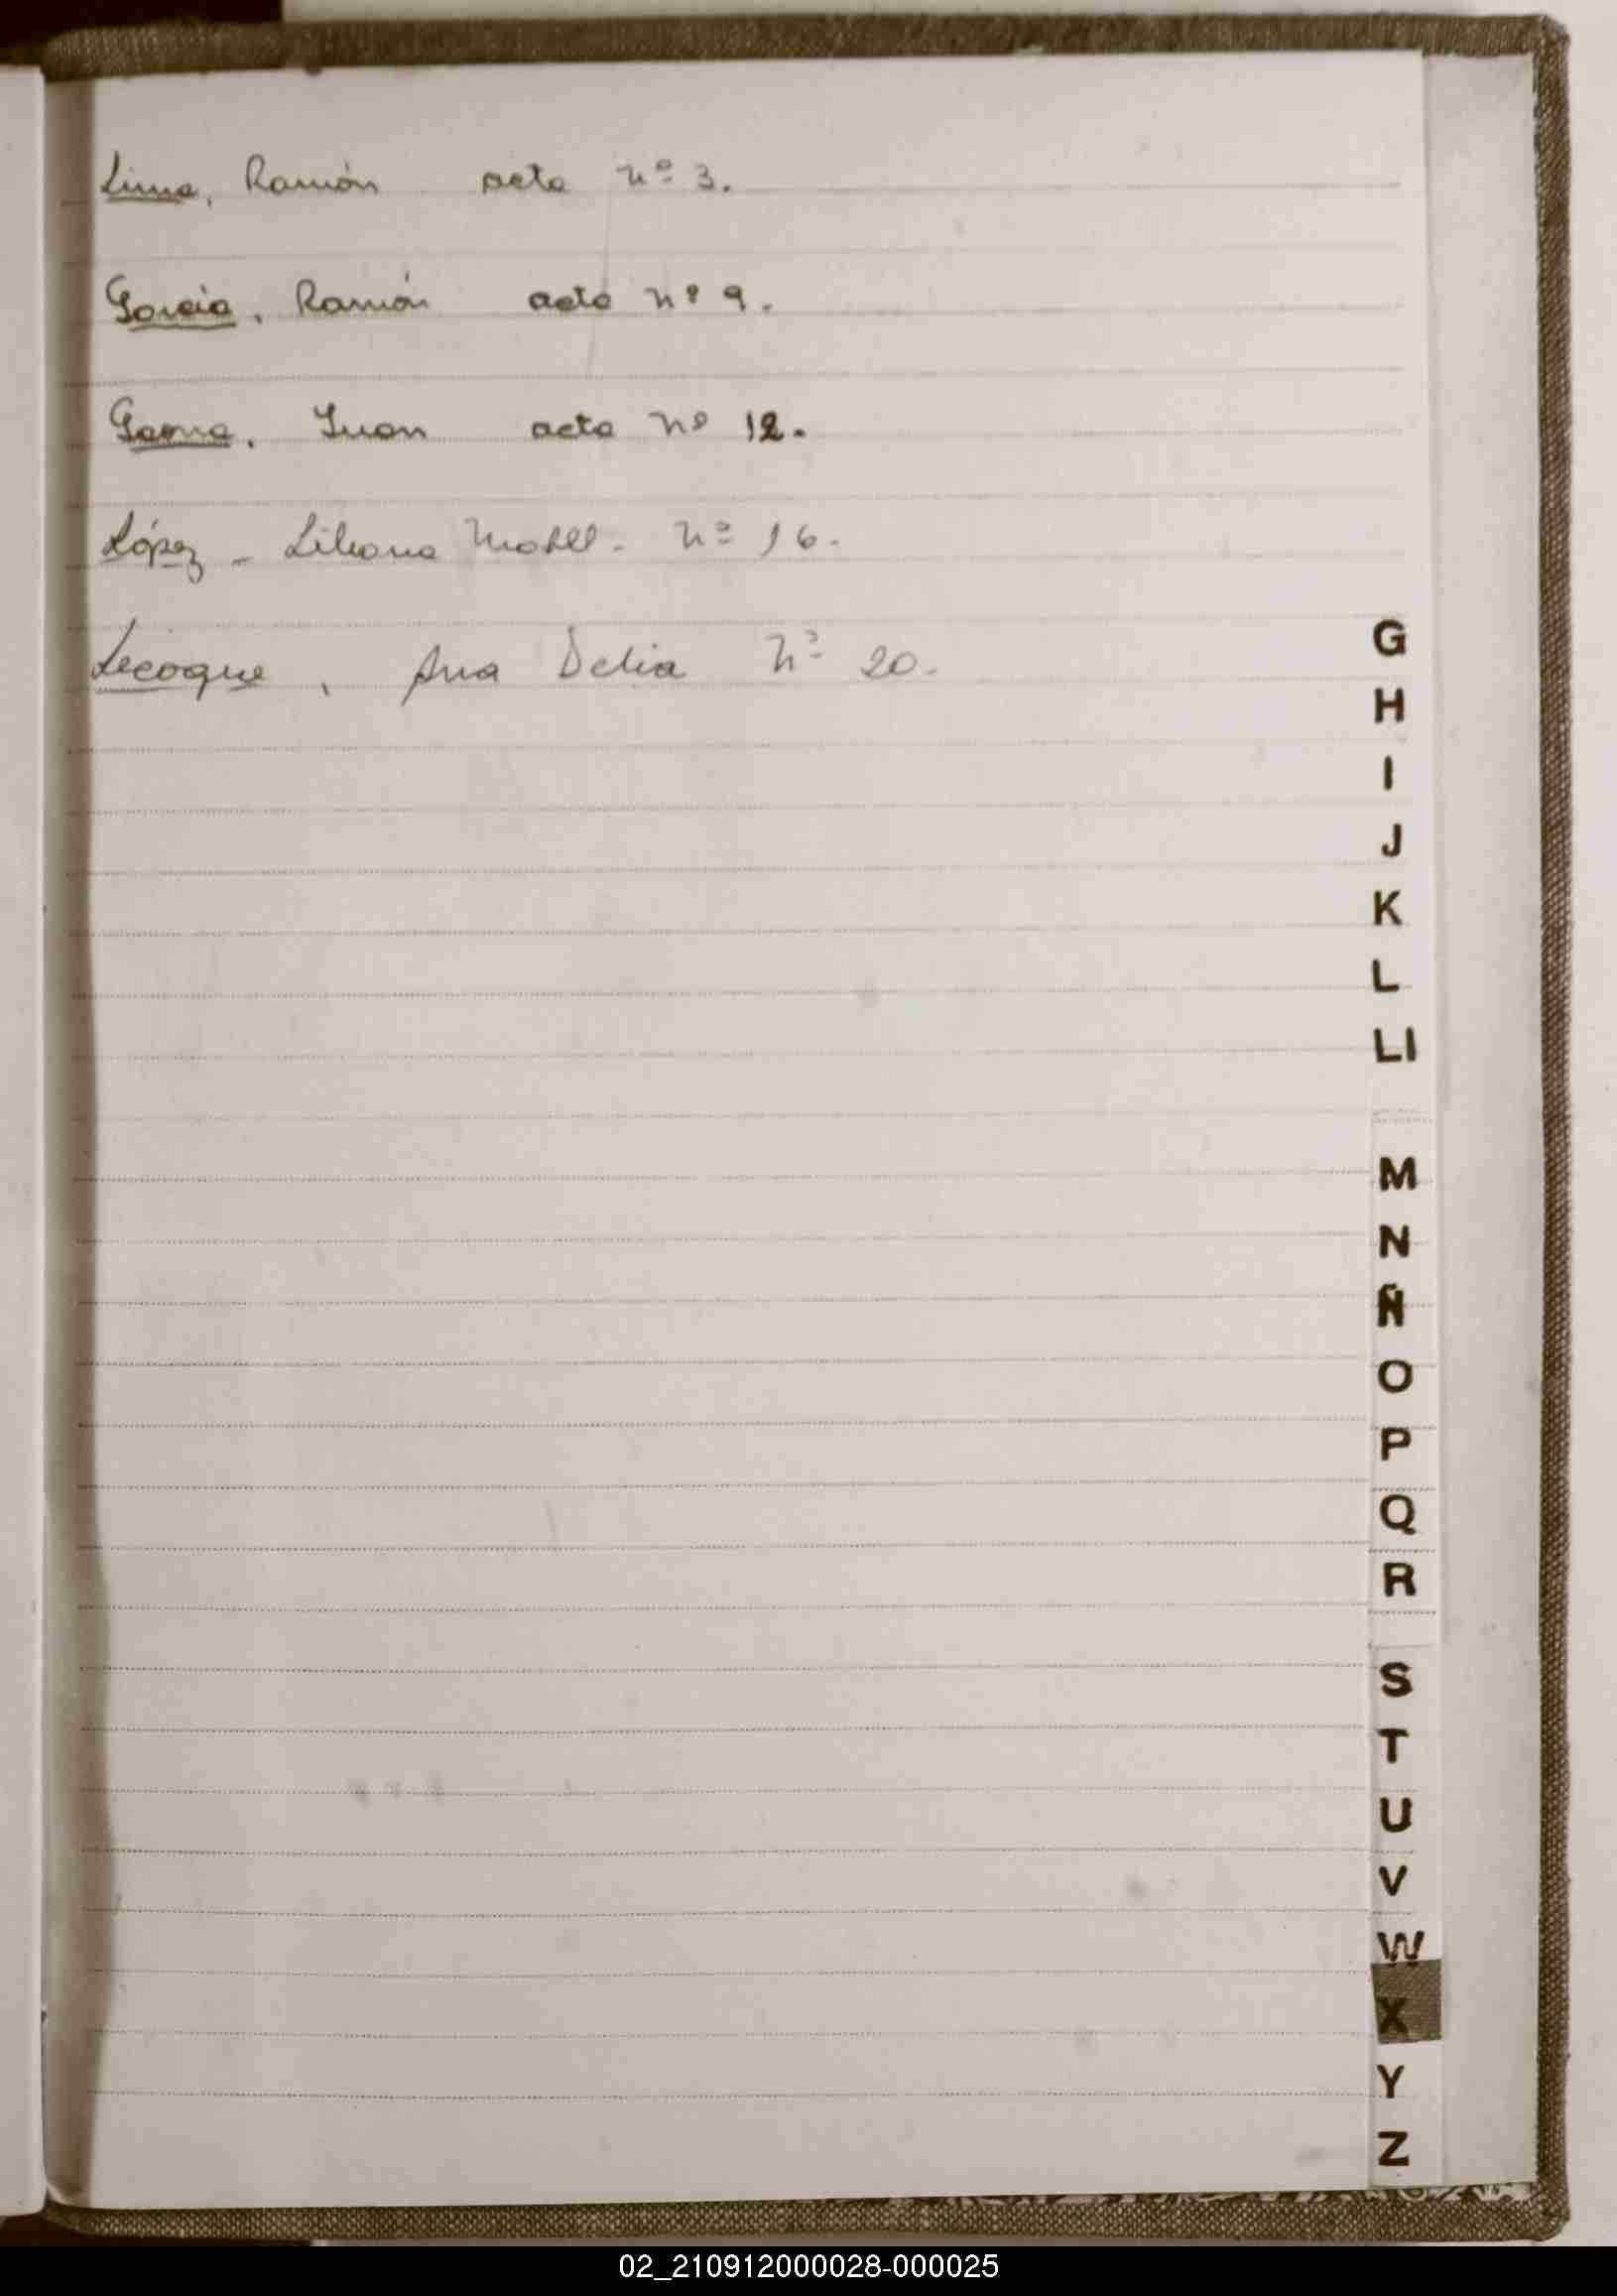 Lima, Ramón acta nº 3.
García, Ramón acta nº 9.
Gama, Juan acta nº 12.
López - Liliana Mabel - nº 16.
Lecoque, Ana Delia Nº 20.
G
H
I
J
K
L
Ll
M
N
Ñ
O
P
Q
R
S
T
U
V
W
X
Y
Z
02_210912000028-000025